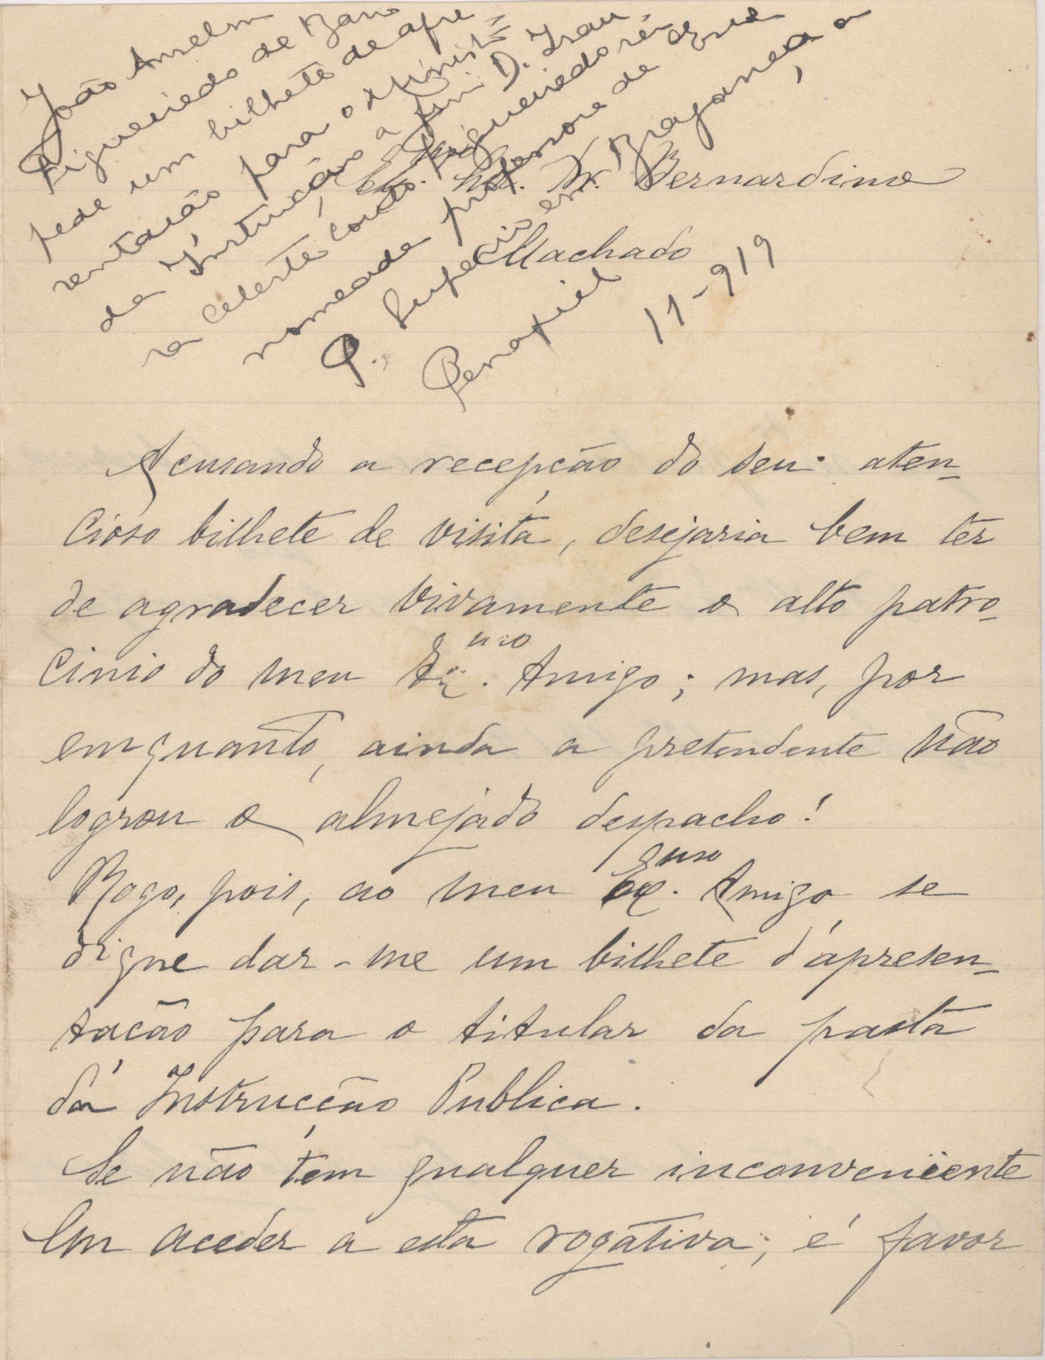 João Anselm
Figueiredo de Bar
pede um bilhete de apre-
sentação para o Minist
da Instrução a fim D. Izau-
ra Celeste Couto Figueiredo
nomeada professora de
P. Superior em Bragança
Penafiel
11-919
Dr. Bernardino
Machado
Acusando a recepção do seu aten-
cioso bilhete de visita, desejaria bem ter
de agradecer vivamente o alto patro-
cinio do meu Exmo. Amigo; mas, por
emquanto, ainda a pretendente não
logrou o almejado despacho!
Rogo, pois, ao meu Exmo. Amigo se
digne dar-me um bilhete d'apresen-
tação para o titular da pasta
da Instrucção Publica.
Se não tem qualquer inconveniente
em aceder a esta rogativa, é favor